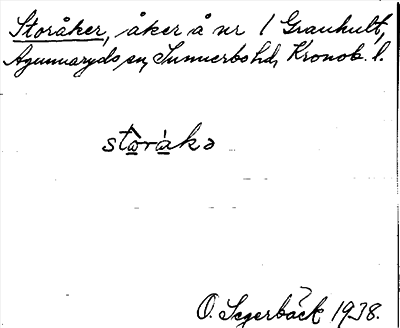 Storåker, åker å nr 1 Grauhult,
Agunnaryds sn, Sunnerbo hd, Kronob. l.
stòràkə
O. Segerbäck 1938.